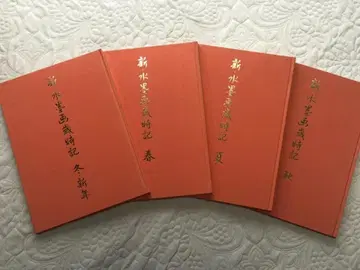 新水墨画歳時記 冬・新年
新水墨画歳時記 春
新水墨画歳時記 夏
新水墨画歳時記 秋